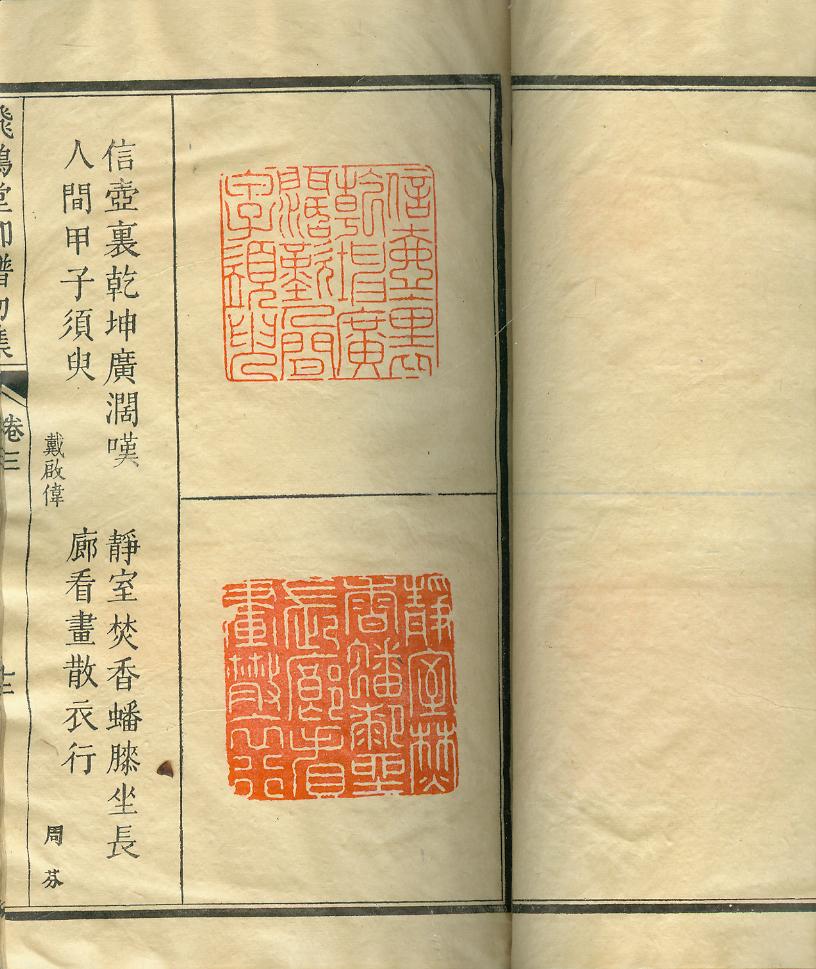 信壺裏
乾坤廣
濶嘆人間
甲子須臾
靜室焚
香蟠膝坐
長廊看
畫散衣行
信壺裏乾坤廣濶嘆
人間甲子須臾
戴啟偉
靜室焚香蟠膝坐長
廊看畫散衣行
周芬
飛鴻堂印譜初集
卷三